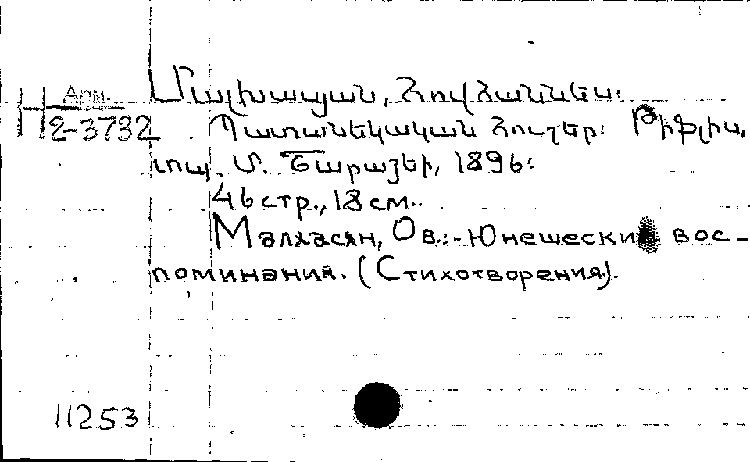 Մալխասյան, Հովհաննես:
Н Арм.
2-3732
Պատանեկական հուշեր: Թիֆլիս,
տպ. Մ. Շարաձեի, 1896:
46 стр., 18 см.
Малхасян, Ов.:-Юнешеские вос-
поминания. (Стихотворения).
11253